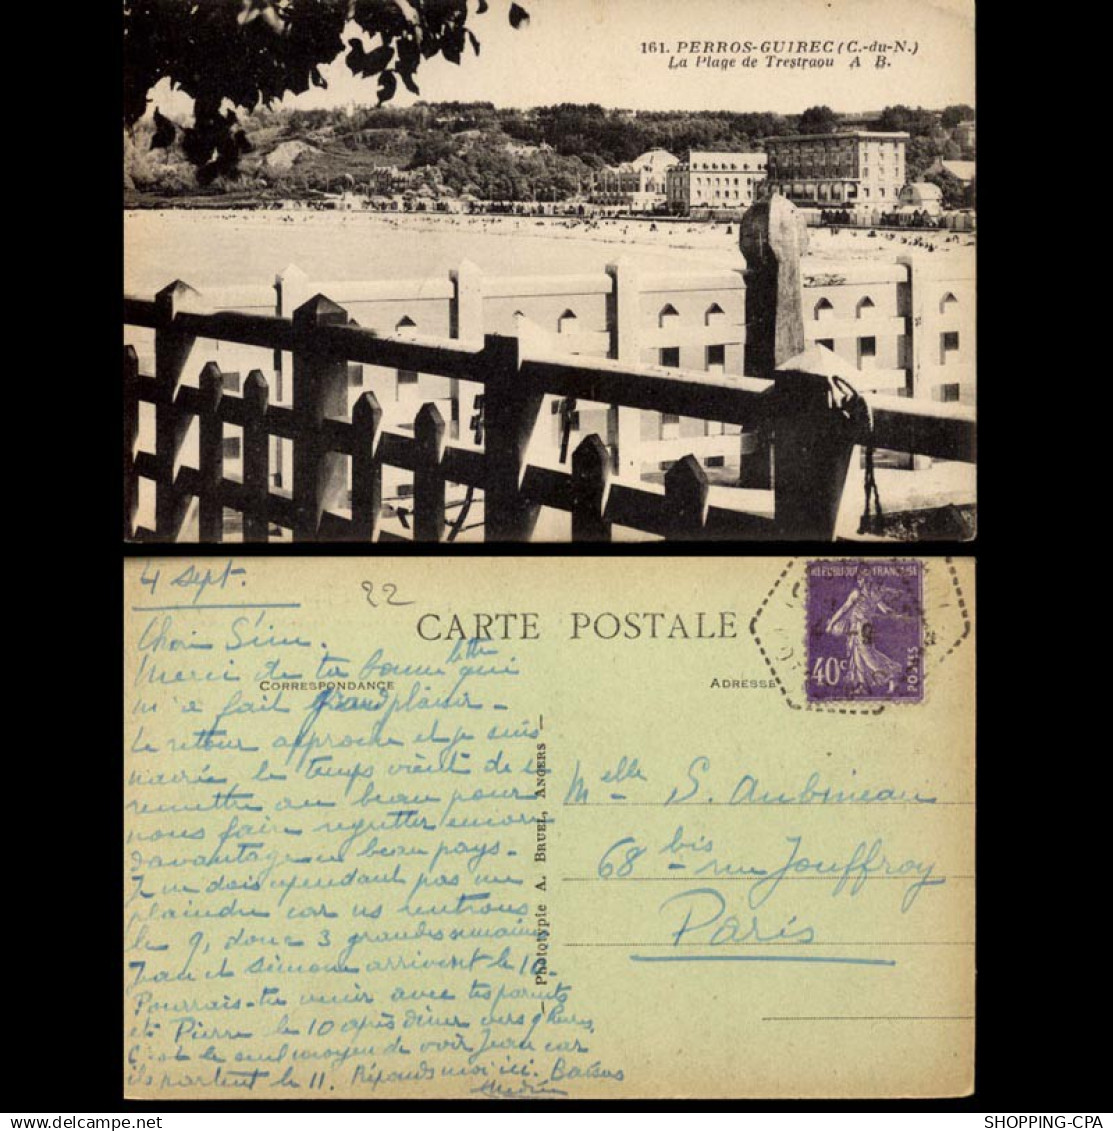 161. PERROS-GUIREC (C.-du-N.)
La Plage de Trestraou A B.
4 sept.
22
CARTE POSTALE
CORRESPONDANCE
ADRESSE
RÉPUBLIQUE FRANÇAISE
40c
POSTES
Merci de ta bonne lettre qui
m'a fait grand plaisir -
Le retour approche et je suis
navrée, le temps vient de se
remettre au beau pour
nous faire regretter encore
davantage ce beau pays -
Je ne dois cependant pas me
plaindre car ns rentrons
le 9, donc 3 grandes semaines
Jean et Simone arrivent le 10.
Pourrais-tu venir avec tes parents
et Pierre le 10 après dîner vers 9 heures,
C'est le seul moyen de voir Jean car
ils partent le 11. Réponds moi ici. Baisers
Phototypie A. BRUEL, ANGERS
Melle S. Aubineau
68 bis rue Jouffroy
Paris
SHOPPING-CPA